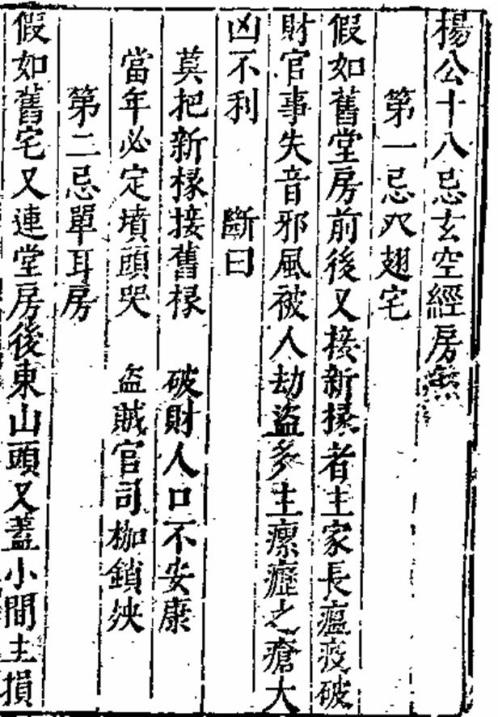 楊公十八忌玄空經房煞
第一忌尺翅宅
假如舊堂房前後又接新椽者主家長瘟疫破
財官事失音邪風被人劫盜多生瘰癧之瘡大
凶不利　斷曰
莫把新椽接舊椽　破財人口不安康
當年必定墳頭哭　盜賊官司枷鎖殃
第二忌單耳房
假如舊宅又連堂房後東山頭又蓋小間主損